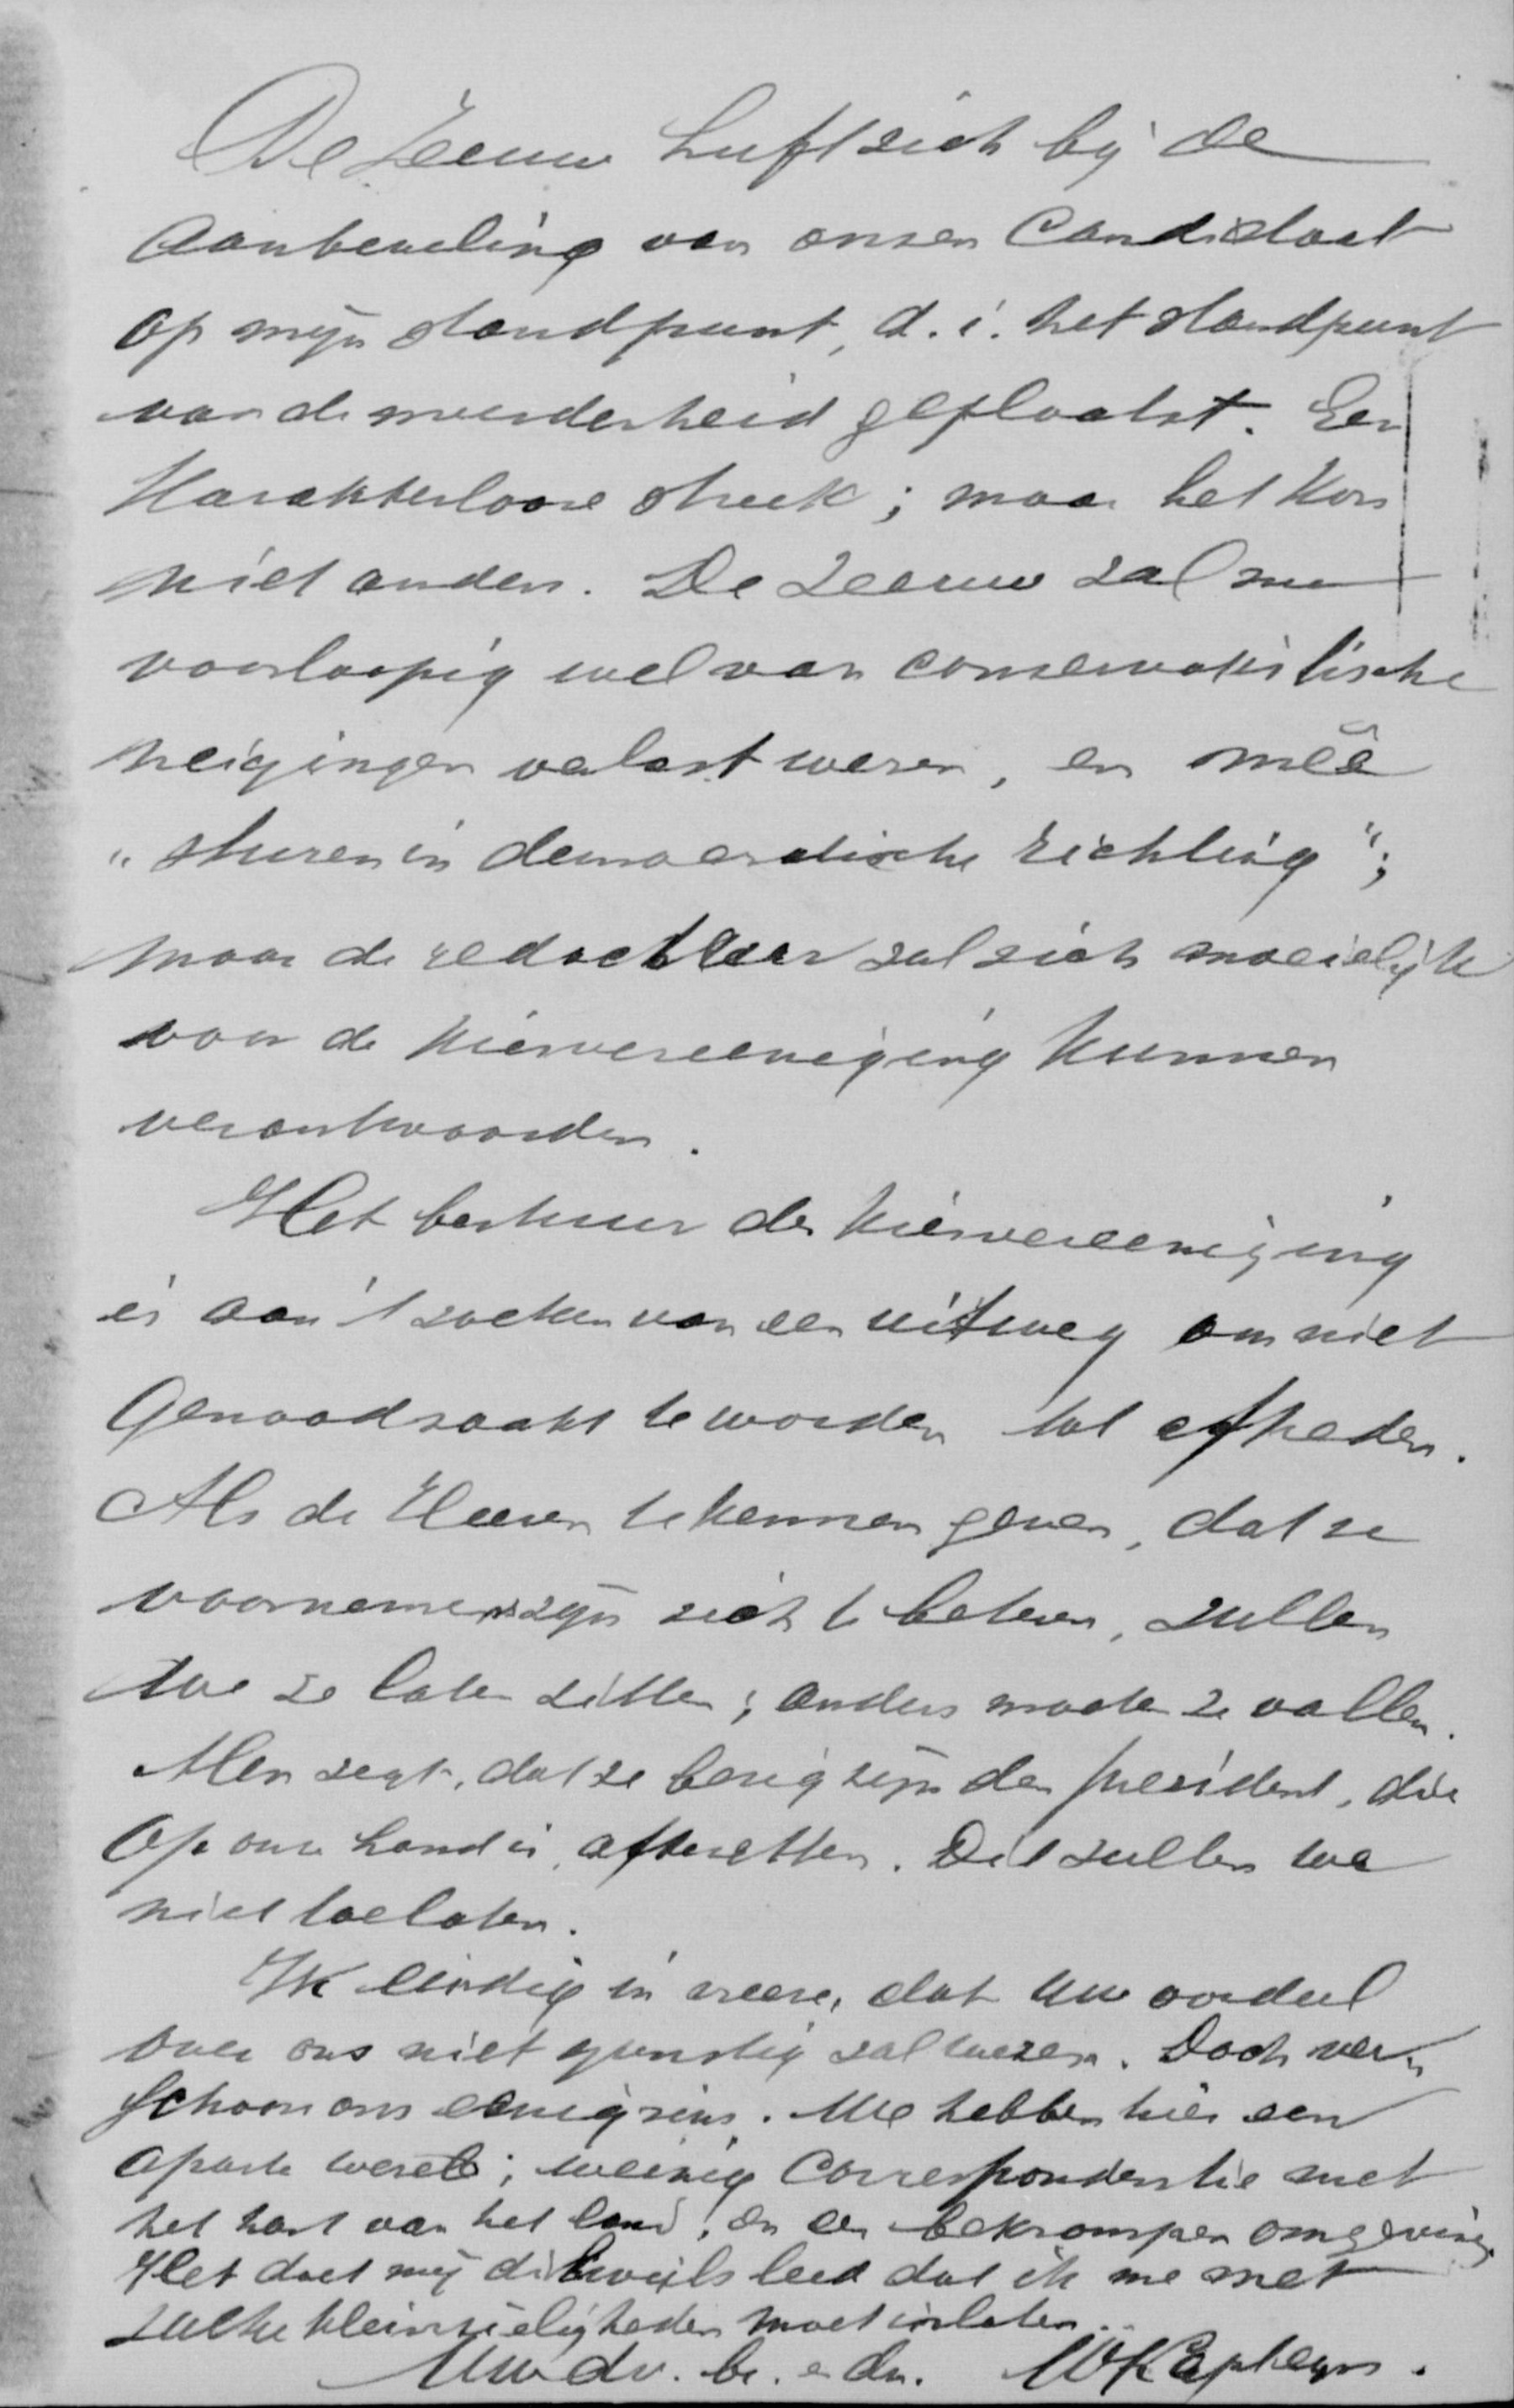 De Zeeuw heeft zich bij de
aanbeveling van onzen Candidaat
op mijn standpunt, d. i. het standpunt
van de meerderheid geplaatst. Een
Karakterlooze streek; maar het kon
niet anders. De Zeeuw zal nu
voorloopig wel van conservatistische
neigingen verlost wezen, en meê
"sturen in democratische richting";
maar de redacteur zal zich moeielijk
voor de kiesvereeniging kunnen
verantwoorden.
Het bestuur der kiesvereeniging
is aan 't zoeken van een uitweg om niet
genoodzaakt te worden tot aftreden.
Als de Heeren te kennen geven, dat ze
voornemens zijn zich te beteren, zullen
we ze laten zitten; anders moeten ze vallen.
Men zegt, dat ze bezig zijn den president, die
op onze hand is, aftezetten. Dit zullen we
niet toelaten.
Ik eindig in vreeze, dat Uw oordeel
over ons niet gunstig zal wezen. Doch ver-
schoon ons eenigzins. We hebben hier een
aparte wereld; weinig Correspondentie met
het hart van het land, en een bekrompen omgeving.
Het doet mij dikwijls leed dat ik me met
zulke kleinzieligheden moet inlaten.
Uw dv. br. e dn.